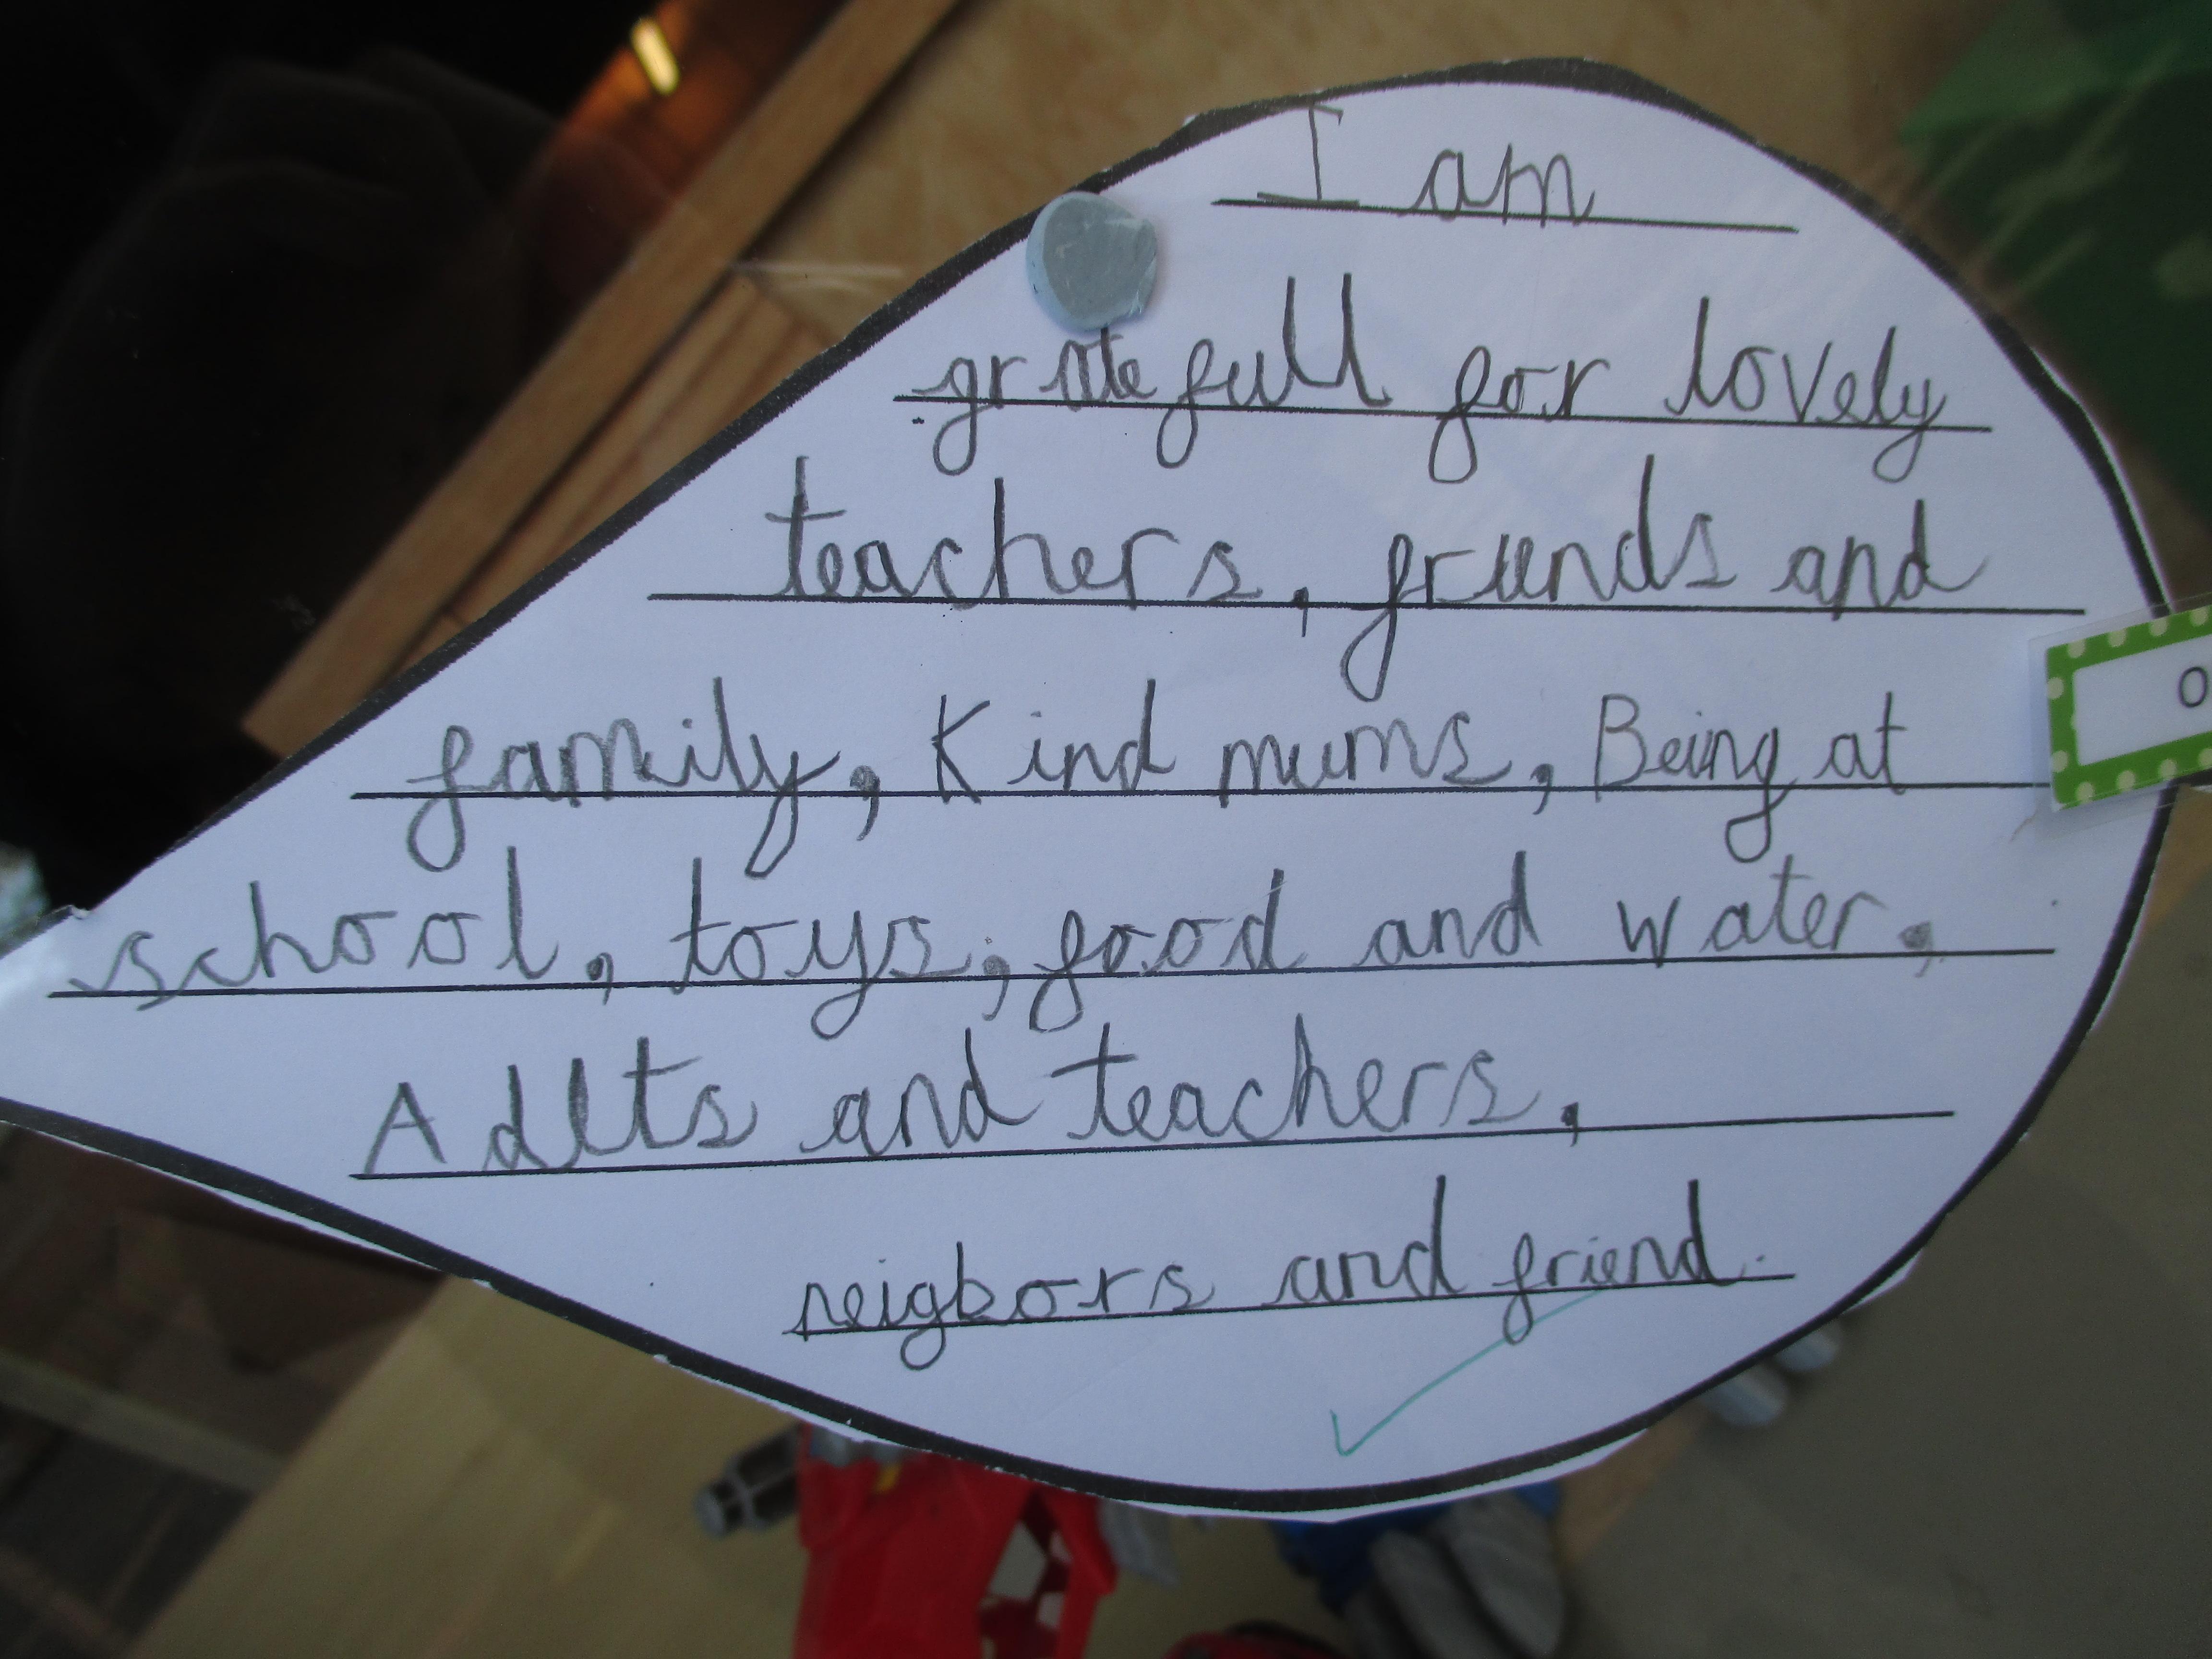 I am
gratefull for lovely
teachers, friends and
family, Kind mums, Being at
school, toys, food and water,
Adlts and teachers,
neigbors and friend.
o